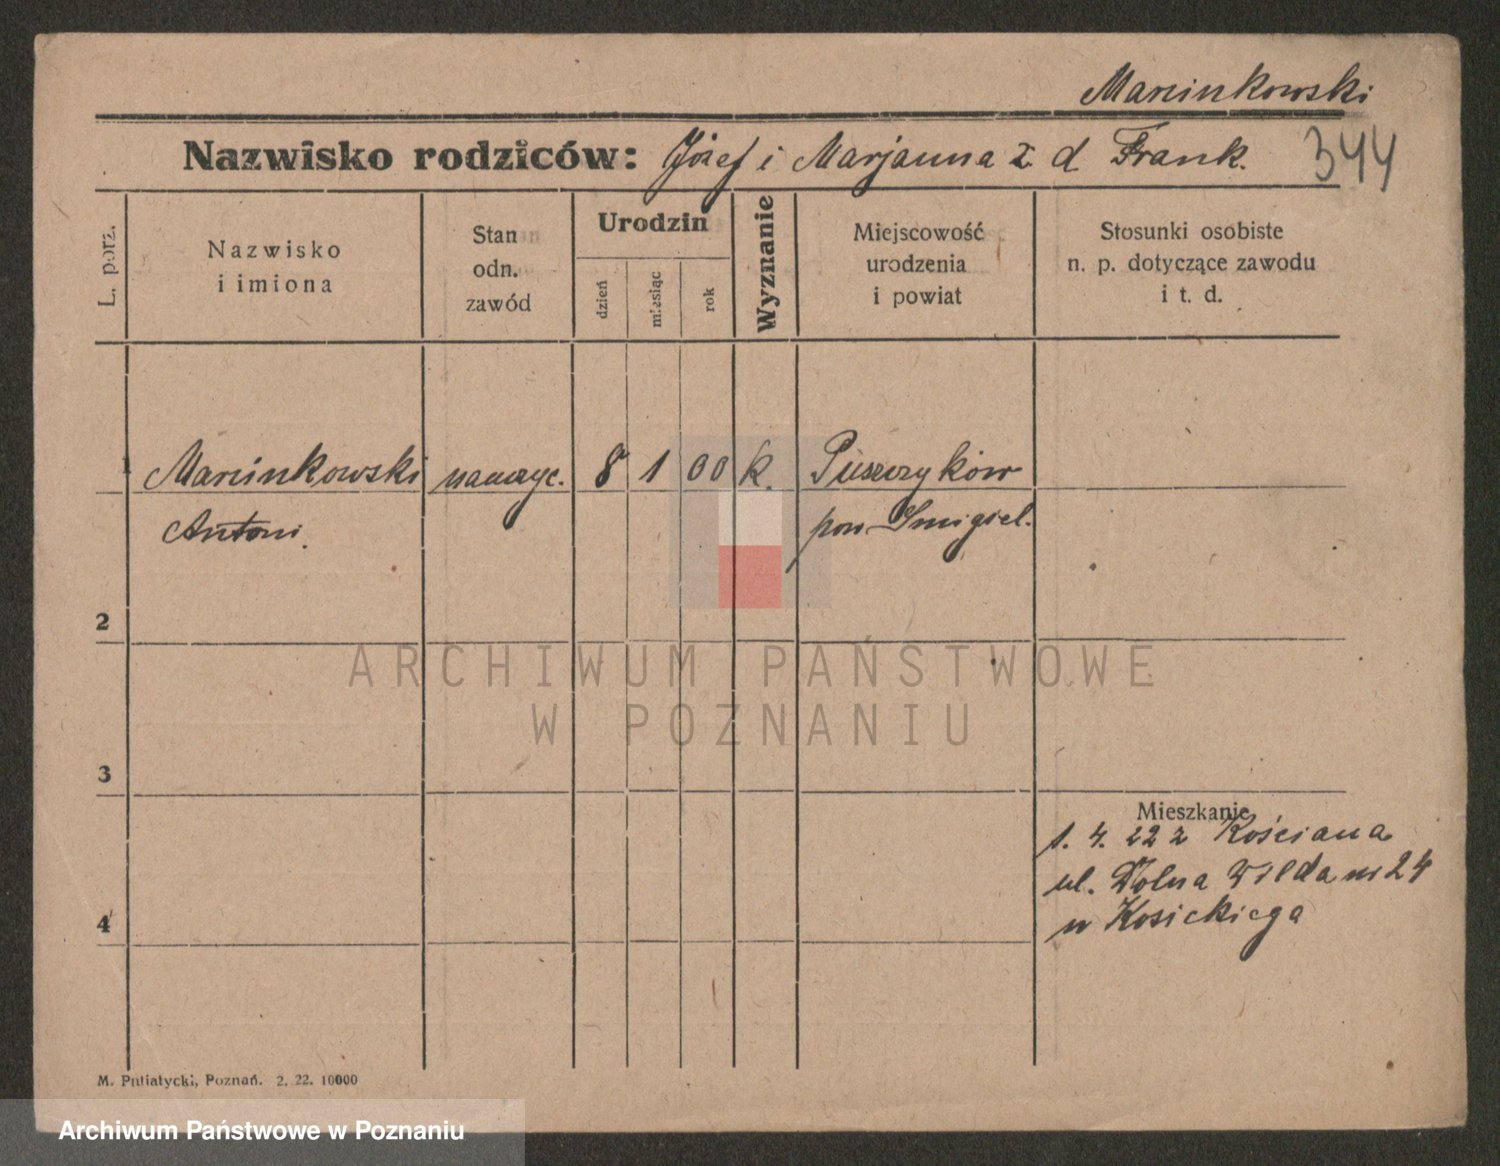 Marcinkowski
Nazwisko rodziców: Józef i Marjanna z d Frank.
344
L. porz.
Nazwisko
i imiona
Stan
odn.
zawód
Urodzin
dzień
miesiąc
rok
Wyznanie
Miejscowość
urodzenia
i powiat
Stosunki osobiste
n. p. dotyczące zawodu
i t. d.
1 Marcinkowski nauczyc. 8 1 00 k. Puszczyków
Antoni. pow. Smigiel.
2
3
4
Mieszkanie
1. 4. 22 z Kościana
ul. Dolna Wilda nr 24
u Kosickiega
M. Putiatycki, Poznań. 2. 22. 10000
ARCHIWUM PAŃSTWOWE
W POZNANIU
Archiwum Państwowe w Poznaniu